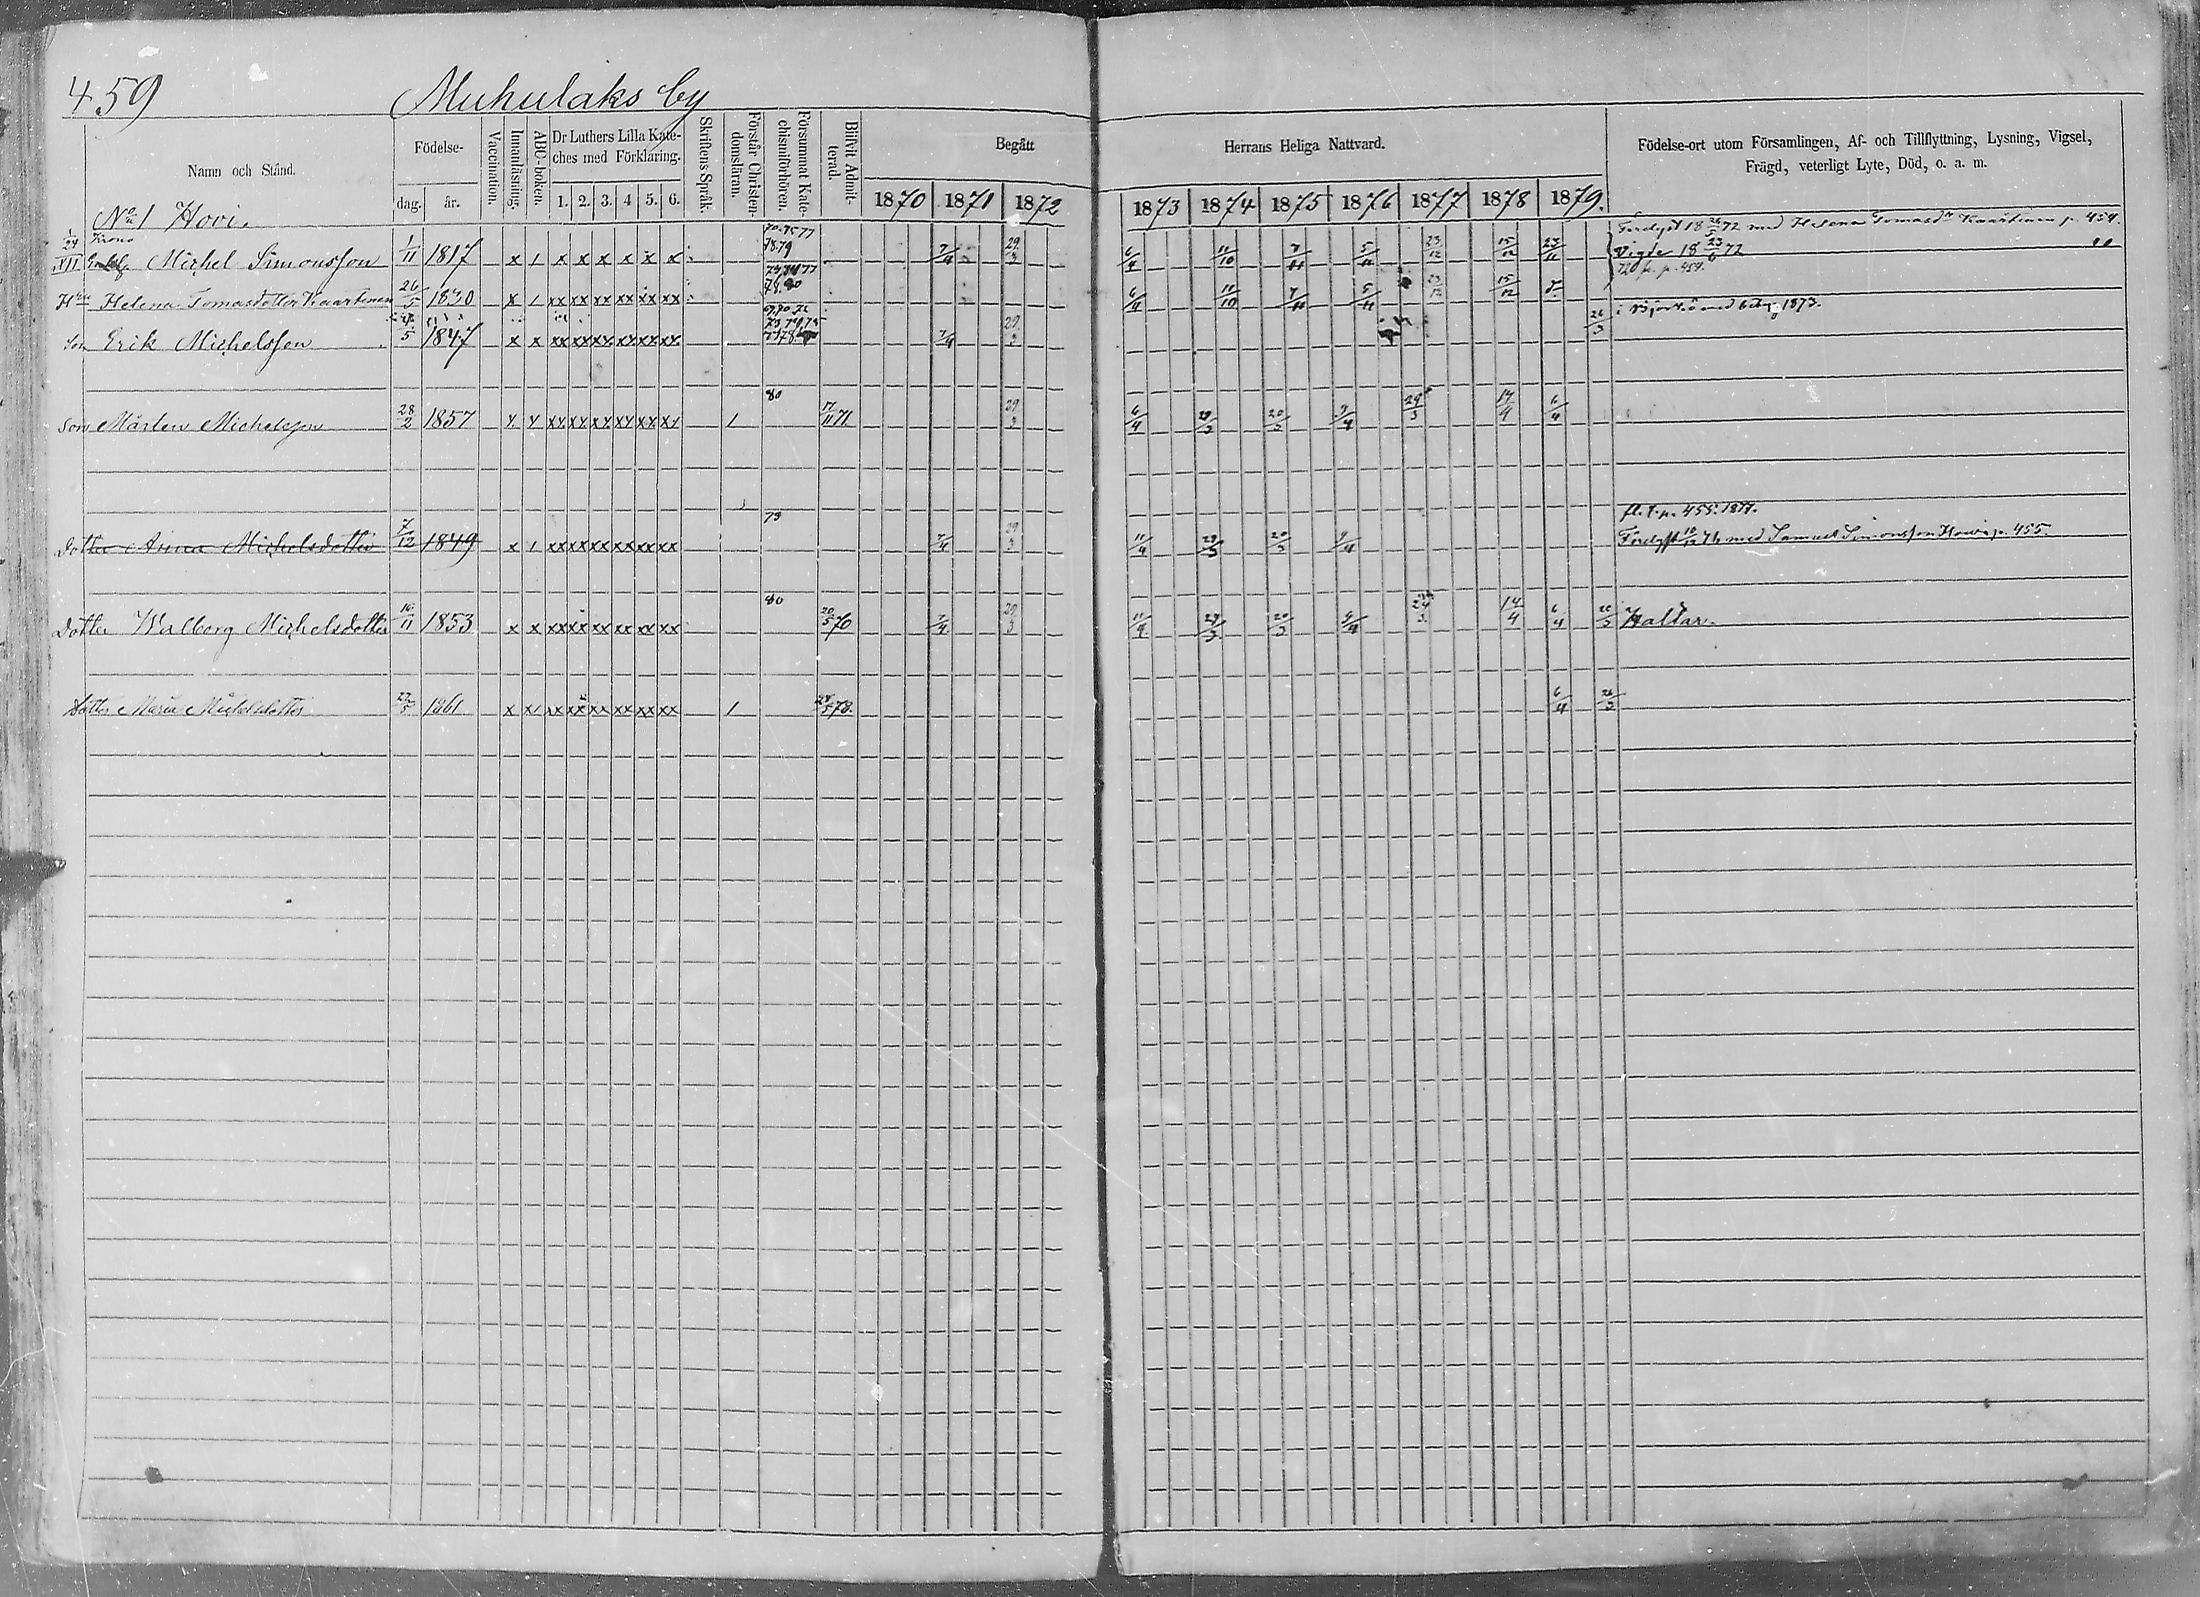 459 Muhulaks by
Namn och Stånd.
Födelse-
dag. år.
Vaccination.
Innanläsning.
ABC-boken.
Dr Luthers Lilla Kate-
ches med Förklaring.
1. 2. 3. 4 5. 6.
Skriftens Språk.
Förstår Christen-
domsläran.
Försummat Kate-
chismiförhören.
Blifvit Admit-
terad.
Begått
1870 1871 1872
Herrans Heliga Nattvard.
1873 1874 1875 1876 1877 1878 1879.
Födelse-ort utom Församlingen, Af- och Tillflyttning, Lysning, Vigsel,
Frägd, veterligt Lyte, Död, o. a. m.
No 1 Hovi.
Förelyst 18 26/5 72 med Helena Tomasdr Kaartinen p. 459.
Krono
Michel Simonsson 1/11 1817 x 1 x x x x x x 7/4 29/3 6/4 11/10 7/11 5/11 23/12 15/12 23/11 Vigde 18 23/6 72
Hu Helena Tomasdotter Kaartinen 26/5 1830 x 1 xx xx xx xx xx xx 6/4 11/10 7/11 5/11 23/12 15/12
1873.
Son Erik Michelsson 5 1847 x x xx xx xx xx xx xx 7/4 29/3 26/3
80
Son Mårten Michelsson 28/2 1857 x x xx xx xx xx xx xx 1 17/11 71 29/3 6/4 29/3 20/3 9/4 29/3 14/4 6/4
79
fl. t. p. 455. 1877.
Dotter Anna Michelsdotter 7/12 1849 x 1 xx xx xx xx xx xx 7/4 29/3 11/4 29/3 20/3 9/4 Förelyst 10/12 76 med Samuel Simonsson Howi p. 455.
80
Dotter Walborg Michelsdotter 16/11 1853 x x xx xx xx xx xx xx 20/5 70 7/4 29/3 11/4 29/3 20/3 9/4 29/3 14/4 6/4 26/3 Haltar.
Dotter Maria Michelsdotter 27/5 1861 x x1 xx xx xx xx xx xx 1 78. 6/4 26/3